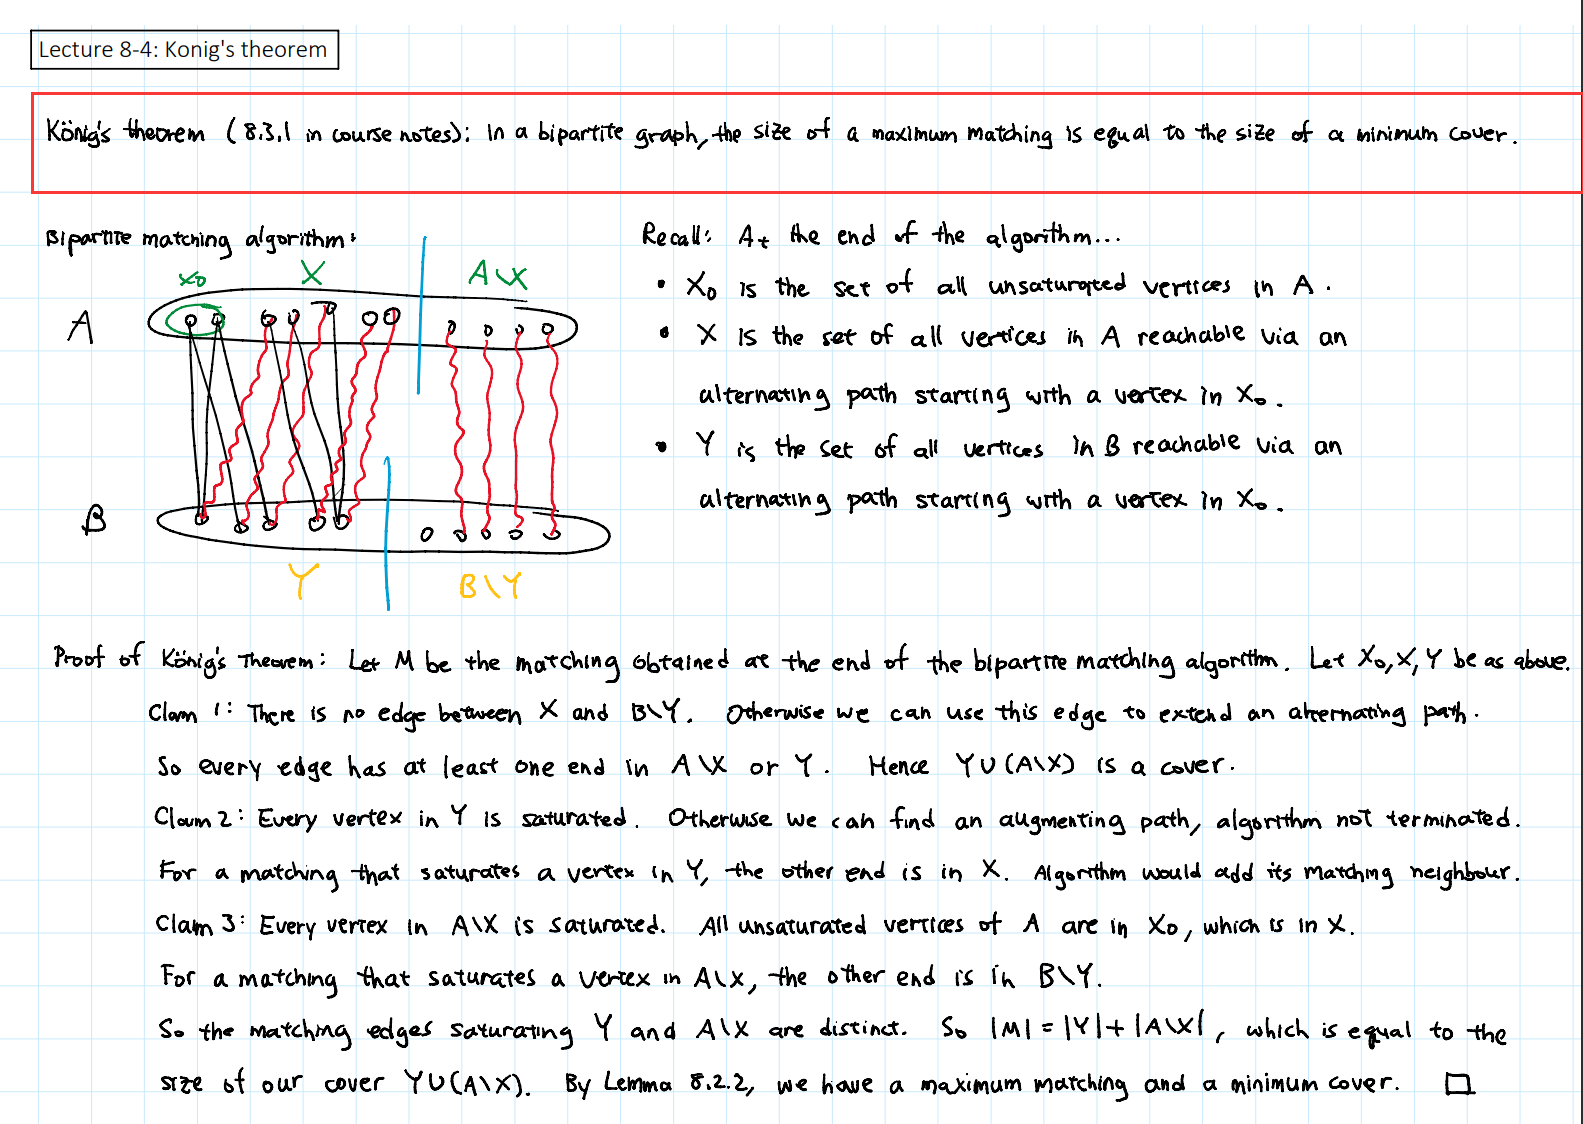 Lecture 8-4: Konig's theorem
König's theorem (8.3.1 in course notes): In a bipartite graph, the size of a maximum matching is equal to the size of a minimum cover.
Bipartite matching algorithm:
X0 X A\X
A
B
Y B\Y
Recall: At the end of the algorithm...
• X0 is the set of all unsaturated vertices in A.
• X is the set of all vertices in A reachable via an
alternating path starting with a vertex in X0.
• Y is the set of all vertices in B reachable via an
alternating path starting with a vertex in X0.
Proof of König's Theorem: Let M be the matching obtained at the end of the bipartite matching algorithm. Let X0, X, Y be as above.
Claim 1: There is no edge between X and B\Y. Otherwise we can use this edge to extend an alternating path.
So every edge has at least one end in A\X or Y. Hence Y∪(A\X) is a cover.
Claim 2: Every vertex in Y is saturated. Otherwise we can find an augmenting path, algorithm not terminated.
For a matching that saturates a vertex in Y, the other end is in X. Algorithm would add its matching neighbour.
Claim 3: Every vertex in A\X is saturated. All unsaturated vertices of A are in X0, which is in X.
For a matching that saturates a vertex in A\X, the other end is in B\Y.
So the matching edges saturating Y and A\X are distinct. So |M| = |Y| + |A\X|, which is equal to the
size of our cover Y∪(A\X). By Lemma 8.2.2, we have a maximum matching and a minimum cover. □